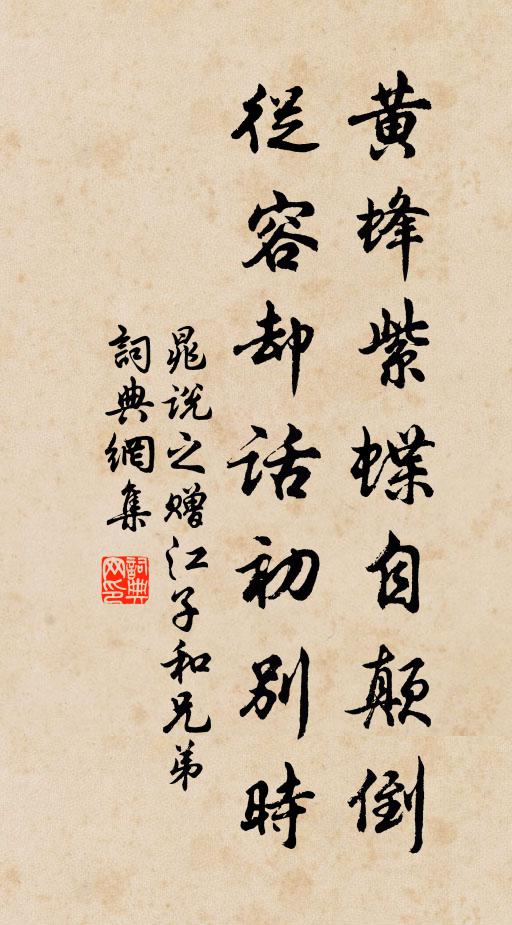 黄蜂紫蝶自顛倒
從容却話初別時
晁說之贈江子和兄弟
詞典網集
詞典网印